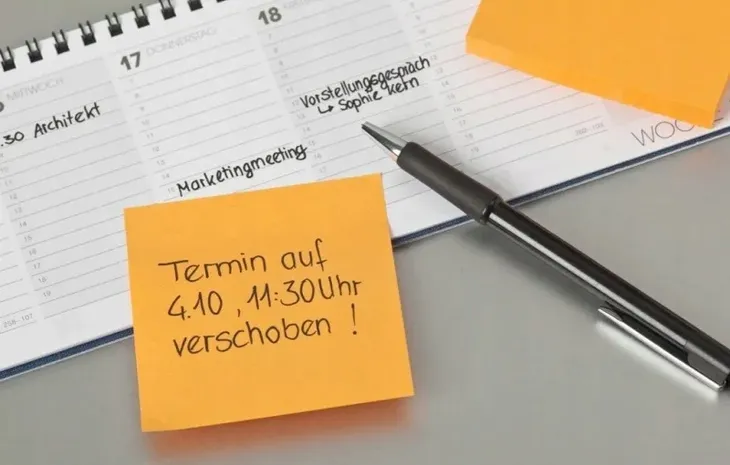 MITTWOCH
17 DONNERSTAG
18
.30 Architekt
Marketingmeeting
Vorstellungsgespräch
↳ Sophie Kern
Termin auf
4.10, 11:30 Uhr
verschoben!